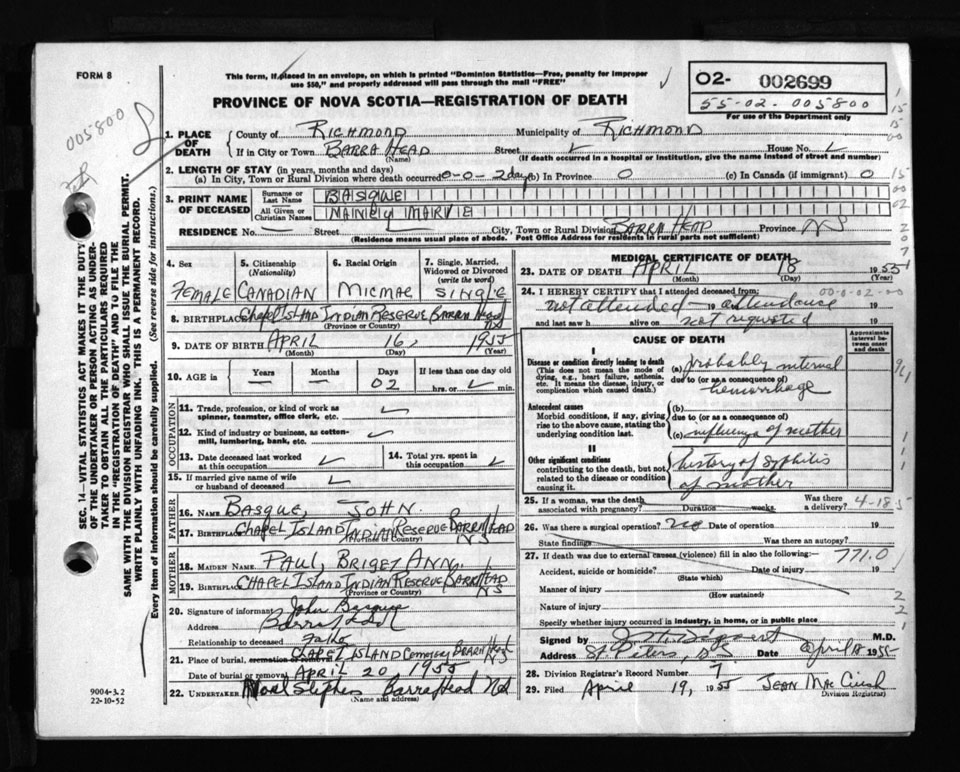 FORM 8
This form, if placed in an envelope, on which is printed "Dominion Statistics—Free, penalty for improper
use $50," and properly addressed will pass through the mail "FREE"
02- 002699
55-02-005800
For use of the Department only
005800
PROVINCE OF NOVA SCOTIA—REGISTRATION OF DEATH
SEC. 14—VITAL STATISTICS ACT MAKES IT THE DUTY
OF THE UNDERTAKER OR PERSON ACTING AS UNDER-
TAKER TO OBTAIN ALL THE PARTICULARS REQUIRED
IN THE "REGISTRATION OF DEATH" AND TO FILE THE
SAME WITH THE DIVISION REGISTRAR WHO SHALL ISSUE THE BURIAL PERMIT.
WRITE PLAINLY WITH UNFADING INK. THIS IS A PERMANENT RECORD.
Every item of information should be carefully supplied. (See reverse side for instructions.)
1. PLACE OF DEATH County of RICHMOND Municipality of RICHMOND
If in City or Town BARRA HEAD Street House No.
(Name) (If death occurred in a hospital or institution, give the name instead of street and number)
2. LENGTH OF STAY (in years, months and days)
(a) In City, Town or Rural Division where death occurred 0-0-2 days (b) In Province 0 (c) In Canada (if immigrant) 0
3. PRINT NAME OF DECEASED Surname or Last Name BASQUE
All Given or Christian Names MARIE
RESIDENCE No. Street City, Town or Rural Division BARRA HEAD Province NS
(Residence means usual place of abode. Post Office Address for residents in rural parts not sufficient)
4. Sex FEMALE
5. Citizenship (Nationality) CANADIAN
6. Racial Origin MICMAC
7. Single, Married, Widowed or Divorced (write the word) SINGLE
8. BIRTHPLACE Chapel Island Indian Reserve Barra Head NS
(Province or Country)
9. DATE OF BIRTH APRIL 16, 1955
(Month) (Day) (Year)
10. AGE in Years Months Days 02 If less than one day old hrs. or min.
OCCUPATION
11. Trade, profession, or kind of work as
spinner, teamster, office clerk, etc.
12. Kind of industry or business, as cotton-
mill, lumbering, bank, etc.
13. Date deceased last worked
at this occupation
14. Total yrs. spent in
this occupation
15. If married give name of wife
or husband of deceased
FATHER
16. NAME BASQUE, JOHN
17. BIRTHPLACE CHAPEL ISLAND INDIAN RESERVE BARRA HEAD NS
(Province or Country)
MOTHER
18. MAIDEN NAME PAUL, BRIGET ANN
19. BIRTHPLACE CHAPEL ISLAND INDIAN RESERVE BARRA HEAD NS
(Province or Country)
20. Signature of informant John Basque
Address Barra Head
Relationship to deceased
21. Place of burial, cremation or removal CHAPEL ISLAND Cemetery BARRA Head NS
Date of burial or removal APRIL 20 1955
22. UNDERTAKER Noel Barra Head NS
(Name and address)
9004-3.2
22-10-52
MEDICAL CERTIFICATE OF DEATH
23. DATE OF DEATH APRIL 18 1955
24. I HEREBY CERTIFY that I attended deceased from:
not attended 19 attendance 19
and last saw h alive on not requested 19
CAUSE OF DEATH
Approximate interval between onset and death
I
Disease or condition directly leading to death
(This does not mean the mode of
dying, e.g., heart failure, asthenia,
etc. It means the disease, injury, or
complication which caused death.)
(a) probably internal
due to (or as a consequence of)
hemorrhage
Antecedent causes
Morbid conditions, if any, giving
rise to the above cause, stating the
underlying condition last.
(b)
due to (or as a consequence of)
(c) of mother
II
Other significant conditions
contributing to the death, but not
related to the disease or condition
causing it.
history of syphilis
of mother
25. If a woman, was the death associated with pregnancy? Duration weeks. Was there a delivery? 4-18-5
26. Was there surgical operation? no Date of operation 19
State findings Was there an autopsy?
27. If death was due to external causes (violence) fill in also the following:— 771.0
Accident, suicide or homicide? Date of injury 19
(State which)
Manner of injury
(How sustained)
Nature of injury
Specify whether injury occurred in industry, in home, or in public place
Signed by M.D.
Address St. Peters, NS Date April 18 1955
28. Division Registrar's Record Number 7
29. Filed April 19, 1955 Jean Mac
Division Registrar